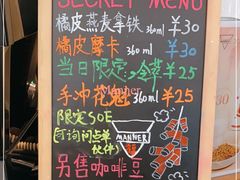 SECRET MENU
橘皮燕麦拿铁 ¥30
360ml
橘皮摩卡 360ml ¥30
当日限定,全萃 ¥25
手冲花魁 360ml ¥25
限定SOE
(可询问点单
伙伴)
MANNER
另售咖啡豆